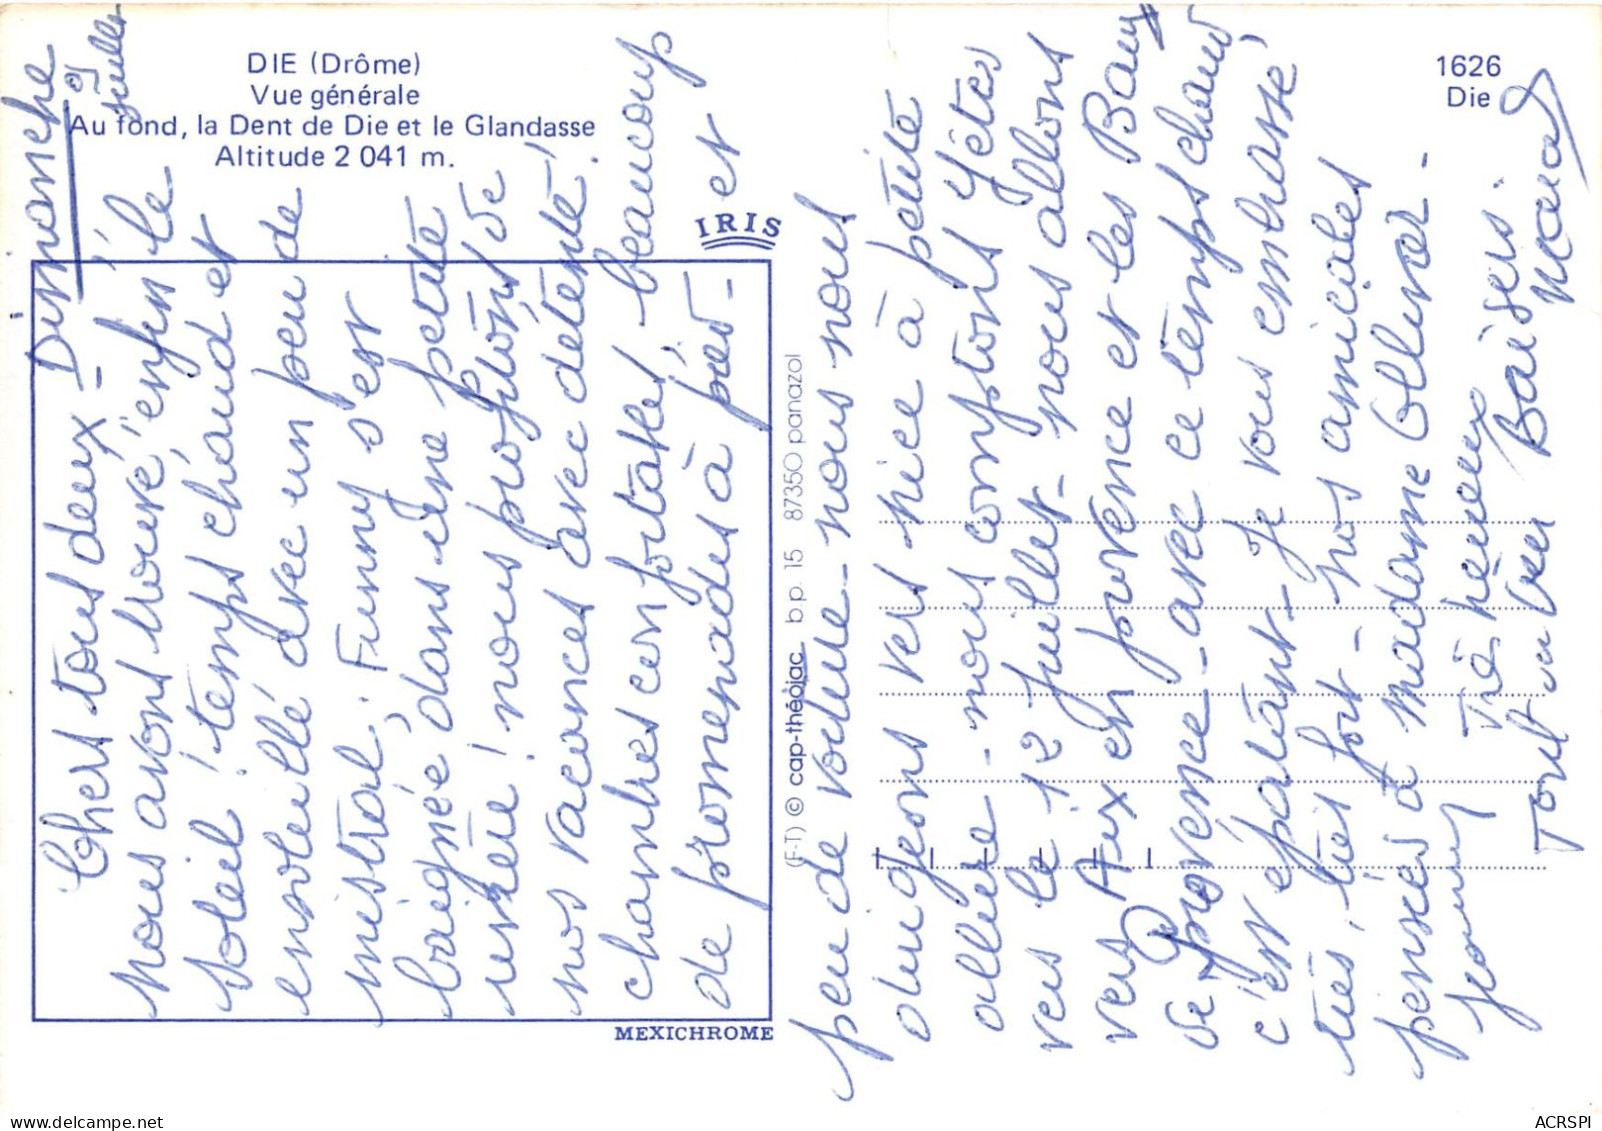 DIE (Drôme)
Vue générale
Au fond, la Dent de Die et le Glandasse
Altitude 2 041 m.
1626
Die
IRIS
MEXICHROME
(F-T) © cap-théojac b.p. 15 87350 panazol
Dimanche
9 Juillet
Chers tous deux -
Nous avons trouvé, enfin, le
soleil ! temps chaud et
ensoleillé avec un peu de
mistral. Fanny s'est
baignée dans une petite
rivière ! nous profitons de
nos vacances avec détente !
chambres confortables, beaucoup
de promenades à pied - et
peu de voiture - nous nous
dirigeons vers Nice à petite
allure - nous comptons y être
vers le 12 Juillet - nous allons
vers Aix en Provence et les Baux
de Provence - avec ce temps chaud
c'est épatant - Je vous embrasse,
très, très fort - nos amicales
pensées à Madame
Très heureux
Tout va bien Baisers.